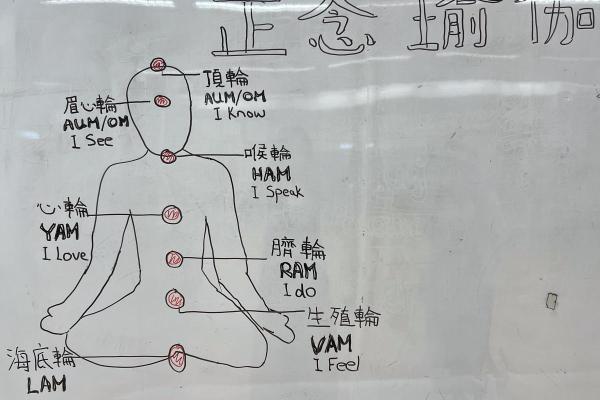 正念瑜伽
頂輪
AUM/OM
I Know
眉心輪
AUM/OM
I See
喉輪
HAM
I Speak
心輪
YAM
I Love
臍輪
RAM
I do
生殖輪
VAM
I Feel
海底輪
LAM